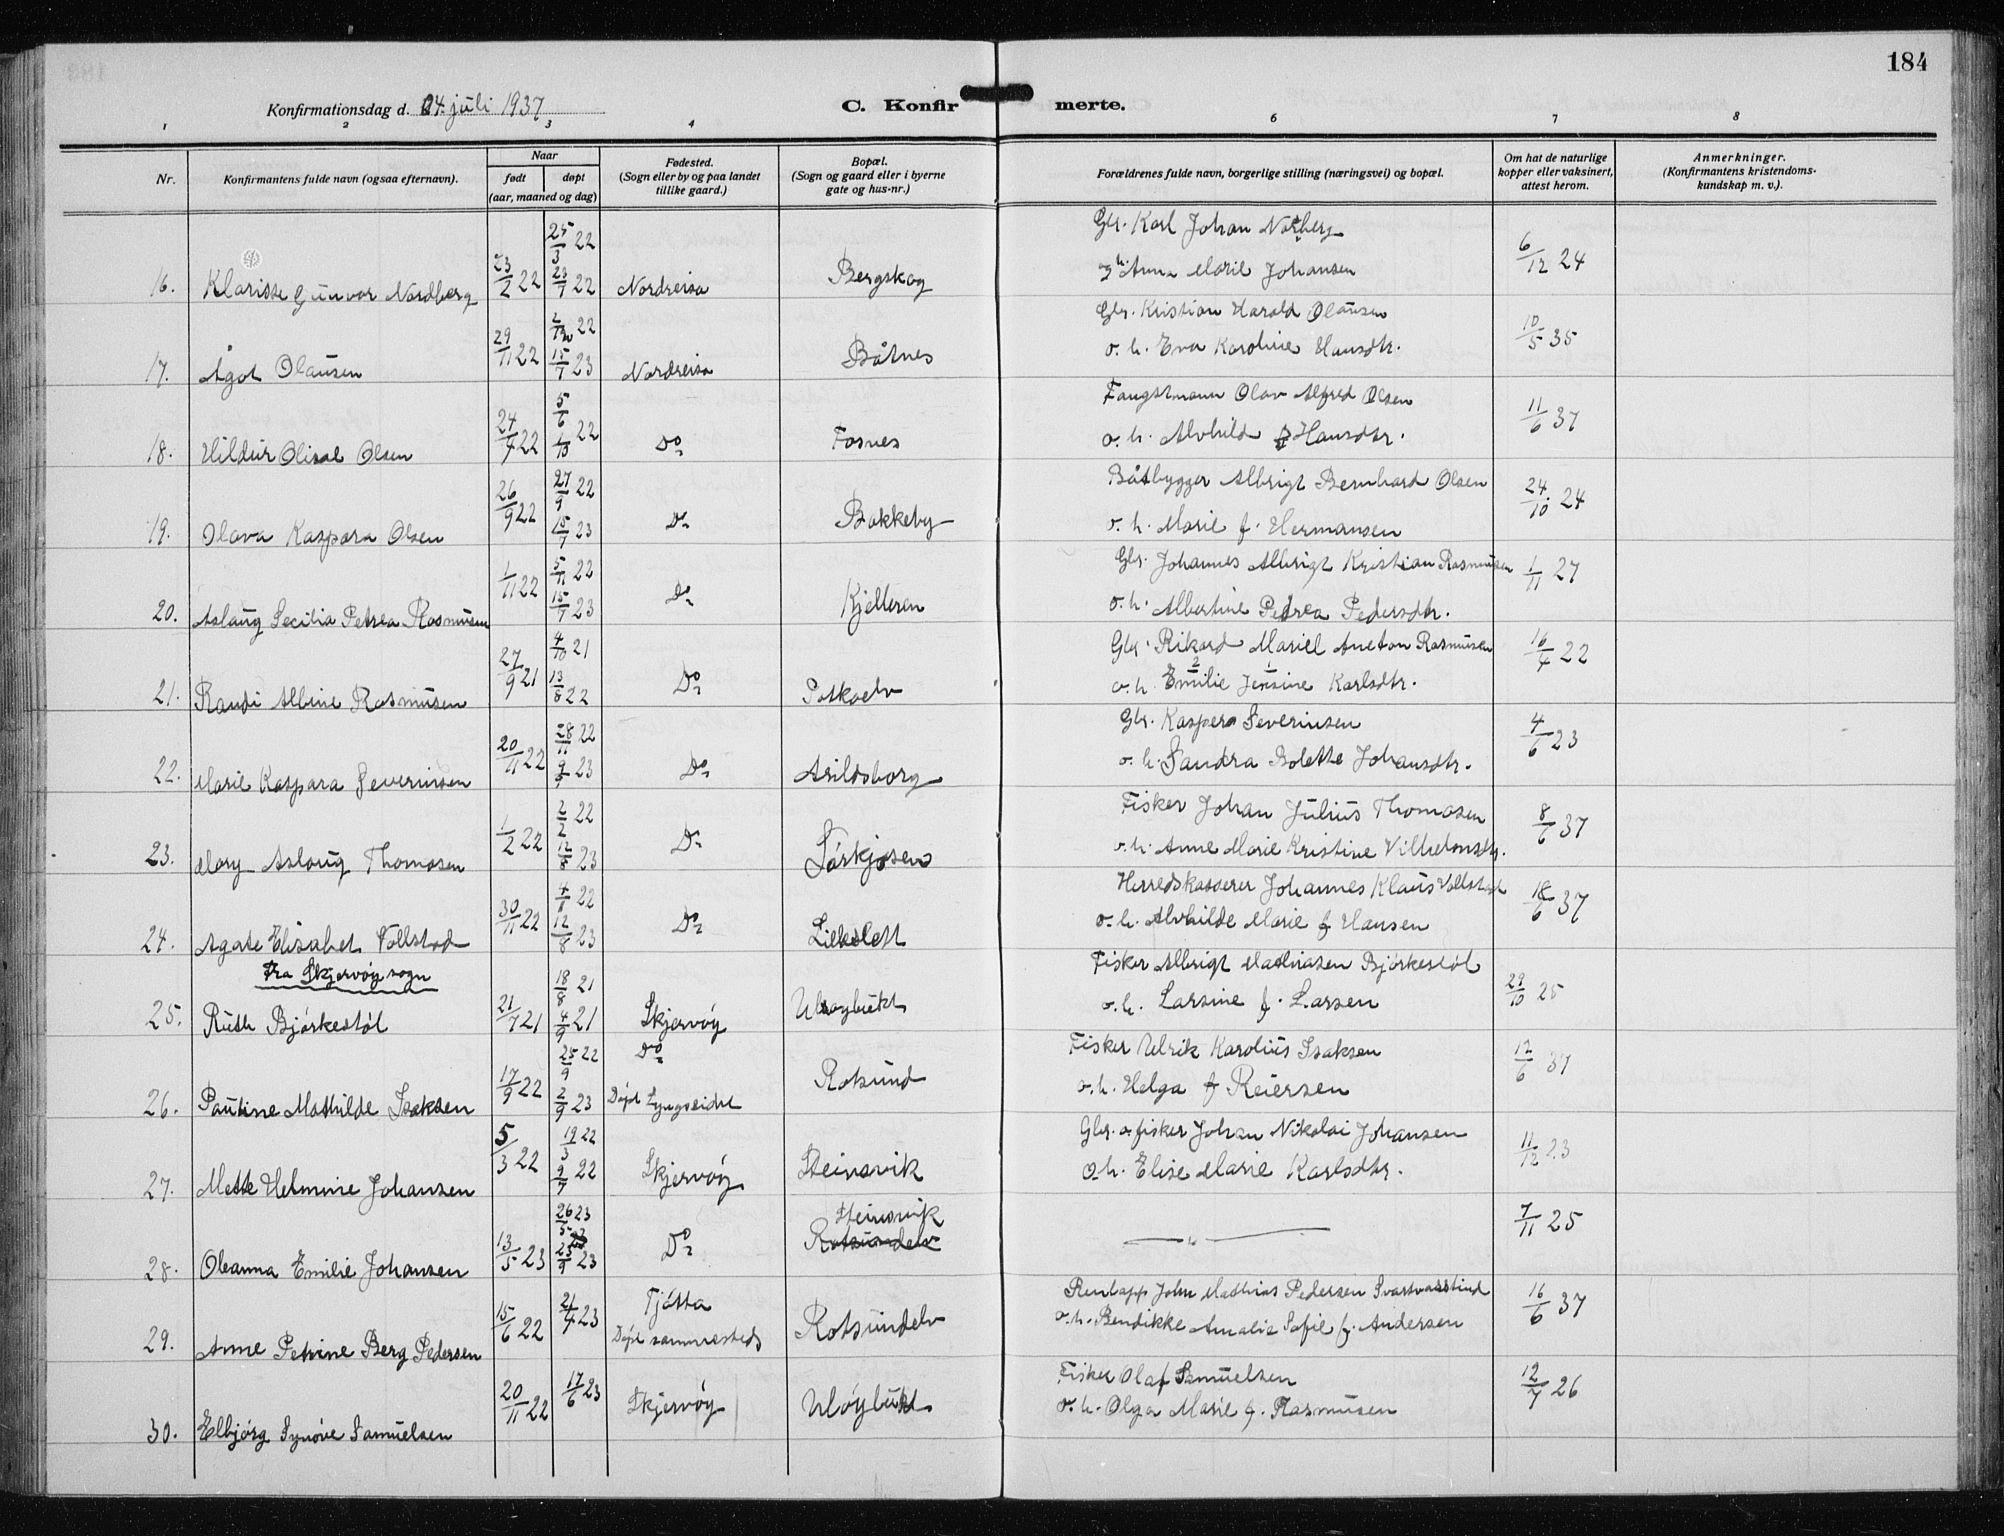 184
Konfirmationsdag d. 04. juli 1937
C. Konfirmerte.
1 2 3 4 6 7 8
Nr.
Konfirmantens fulde navn (ogsaa efternavn).
Naar
født døpt
(aar, maaned og dag)
Fødested.
(Sogn eller by og paa landet
tillike gaard.)
Bopæl.
(Sogn og gaard eller i byerne
gate og hus-nr.)
Forældrenes fulde navn, borgerlige stilling (næringsvei) og bopæl.
Om hat de naturlige
kopper eller vaksinert,
attest herom.
Anmerkninger.
(Konfirmantens kristendoms-
kundskap m. v.)
16. Klarisse Gunvor Nordberg 23/2 22 25/3 22 23/7 22 Nordreisa Bergskog Gbr. Karl Johan Norberg
o. h. Anna Marie Johansen 6/12 24
17. Ågot Olausen 29/11 22 2/12 22 15/7 23 Nordreisa Båtnes Gbr. Kristian Harald Olausen
o. h. Eva Karoline Hansdtr. 10/5 35
18. Hildur Olise Olsen 24/4 22 5/6 22 1/10 Do Fosnes Fangstmann Olav Alfred Olsen
o. h. Alvhild f Hansdtr. 11/6 37
19. Olava Kaspara Olsen 26/9 22 27/9 22 15/7 23 Do Bakkeby Båtbygger Albrigt Bernhard Olsen
o. h. Marie f. Hermansen 24/10 24
20. Aslaug Secilia Petrea Rasmusen 1/11 22 5/11 22 15/7 23 Do Kjelleren Gbr. Johannes Albrigt Kristian Rasmusen
o. h. Albertine Petrea Pedersdtr. 1/11 27
21. Randi Albine Rasmusen 27/9 21 4/10 21 13/8 22 Do Potkaelv Gbr. Rikard Mariel Aneton Rasmusen
o. h. Emilie Jensine Karlsdtr. 16/4 22
22. Marie Kaspara Severinsen 20/11 22 28/11 22 9/ 23 Do Arildsborg Gbr. Kaspera Severinsen
o. h. Sandra Bolette Johansdtr. 4/6 23
23. Mary Aslaug Thomasen 1/2 22 2/2 22 12/8 23 Do Sørkjosen Fisker Johan Julius Thomasen
o. h. Anne Marie Kristine Vilhelmsdtr. 8/6 37
24. Agate Elisabet Vollstad 30/11 22 22 12/8 23 Do Lilleslett Herredskasserer Johannes Klaus Vollstad
o. h. Alvhilde Marie f Hansen 18/6 37
Fra Skjervøy sogn
25. Ruth Bjørkestøl 21/7 21 18/8 21 4/9 21 Skjervøy Uløybukt Fisker Albrigt Mathiasen Bjørkestøl
o. h. Larsine f. Larsen 29/10 25
26. Pauline Mathilde Isaksen 17/9 22 25/9 22 2/9 23 Do
Døpt Lyngseidet Rotsund Fisker Ulrik Karolius Isaksen
o. h. Helga f Reiersen 12/6 37
27. Mette Helmine Johansen 5/3 22 19/3 22 9/7 22 Skjervøy Steinsvik Gbr. o. fisker Johan Nikolai Johansen
o. h. Elise Marie Karlsdtr. 11/12 23
28. Oleanna Emilie Johansen 13/5 23 26/5 23 23/9 23 Do Steinsvik
Rotsundelv — " — 7/11 25
29. Anne Petrine Berg Pedersen 15/6 22 23 Tjøtta
Døpt sammesteds Rotsundelv Renlapp John Mathias Pedersen Svartvasstind
o. h. Bendikke Amalie Sofie f. Andersen 16/6 37
30. Elbjørg Synøve Samuelsen 20/11 22 17/6 23 Skjervøy Uløybukt Fisker Olaf Samuelsen
o. h. Olga Marie f. Rasmusen 12/7 26